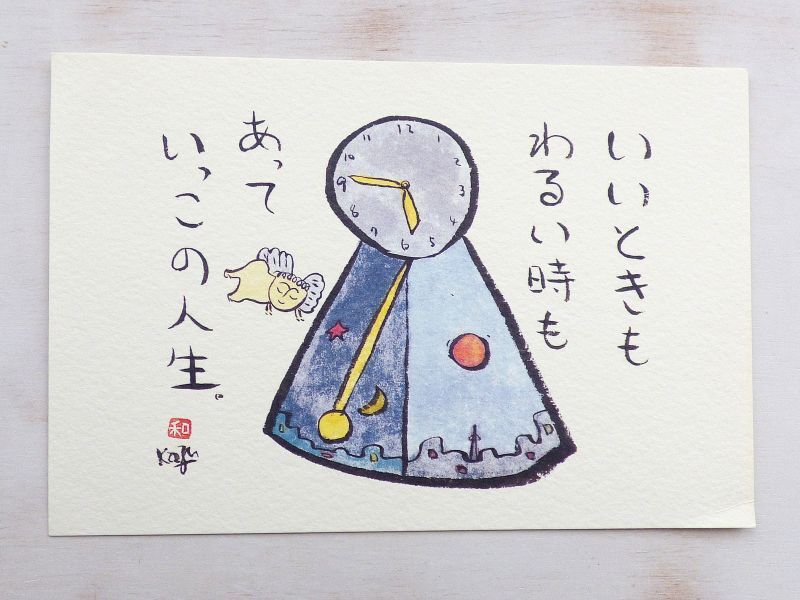 いいときも
わるい時も
あって
いっこの人生。
12
1
2
3
4
5
6
7
8
9
10
11
和